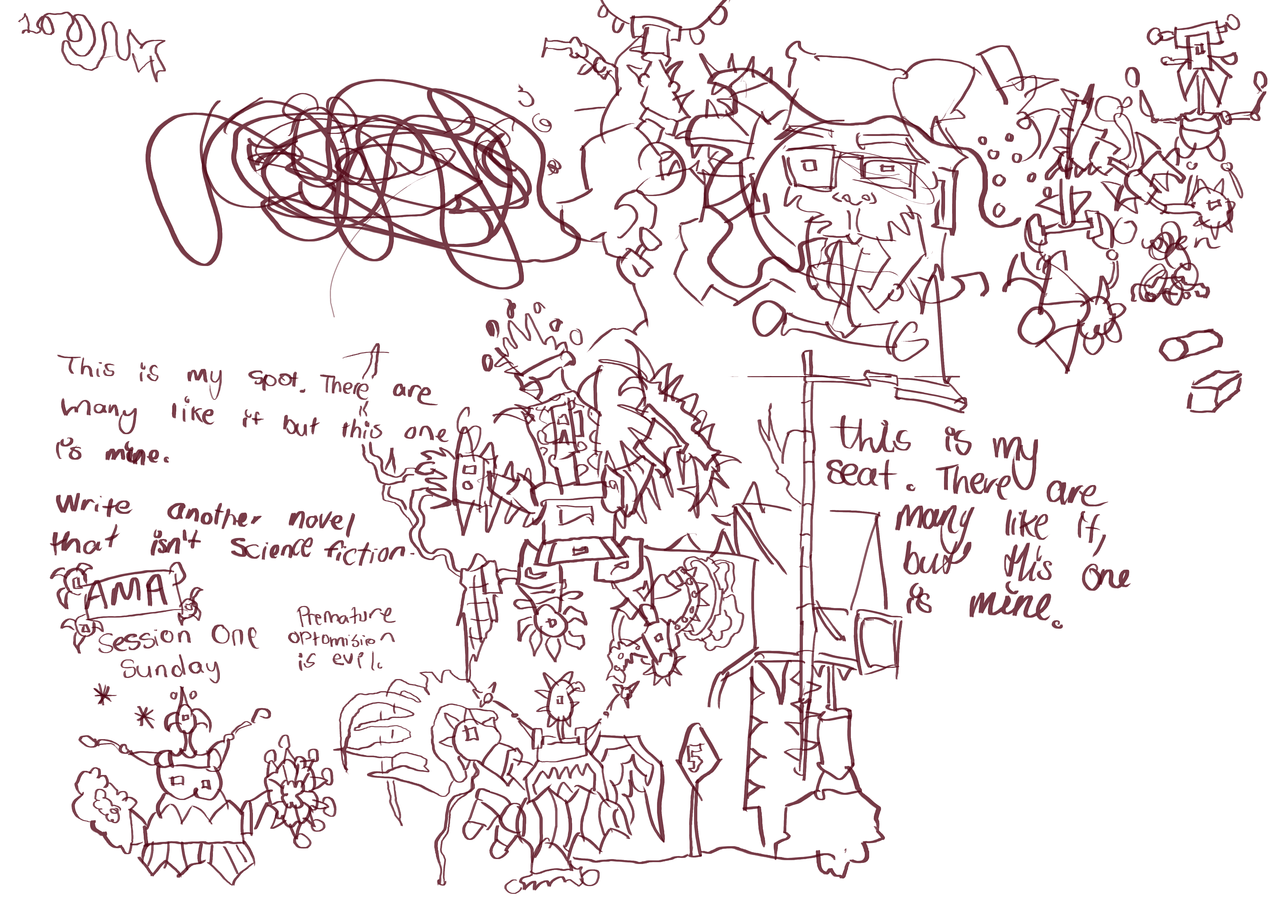 This is my spot. There are
many like it but this one
is mine.
Write another novel
that isn't science fiction.
AMA
Session One
Sunday
Premature
optomision
is evil.
this is my
seat. There are
many like it,
but this one
is mine.
5